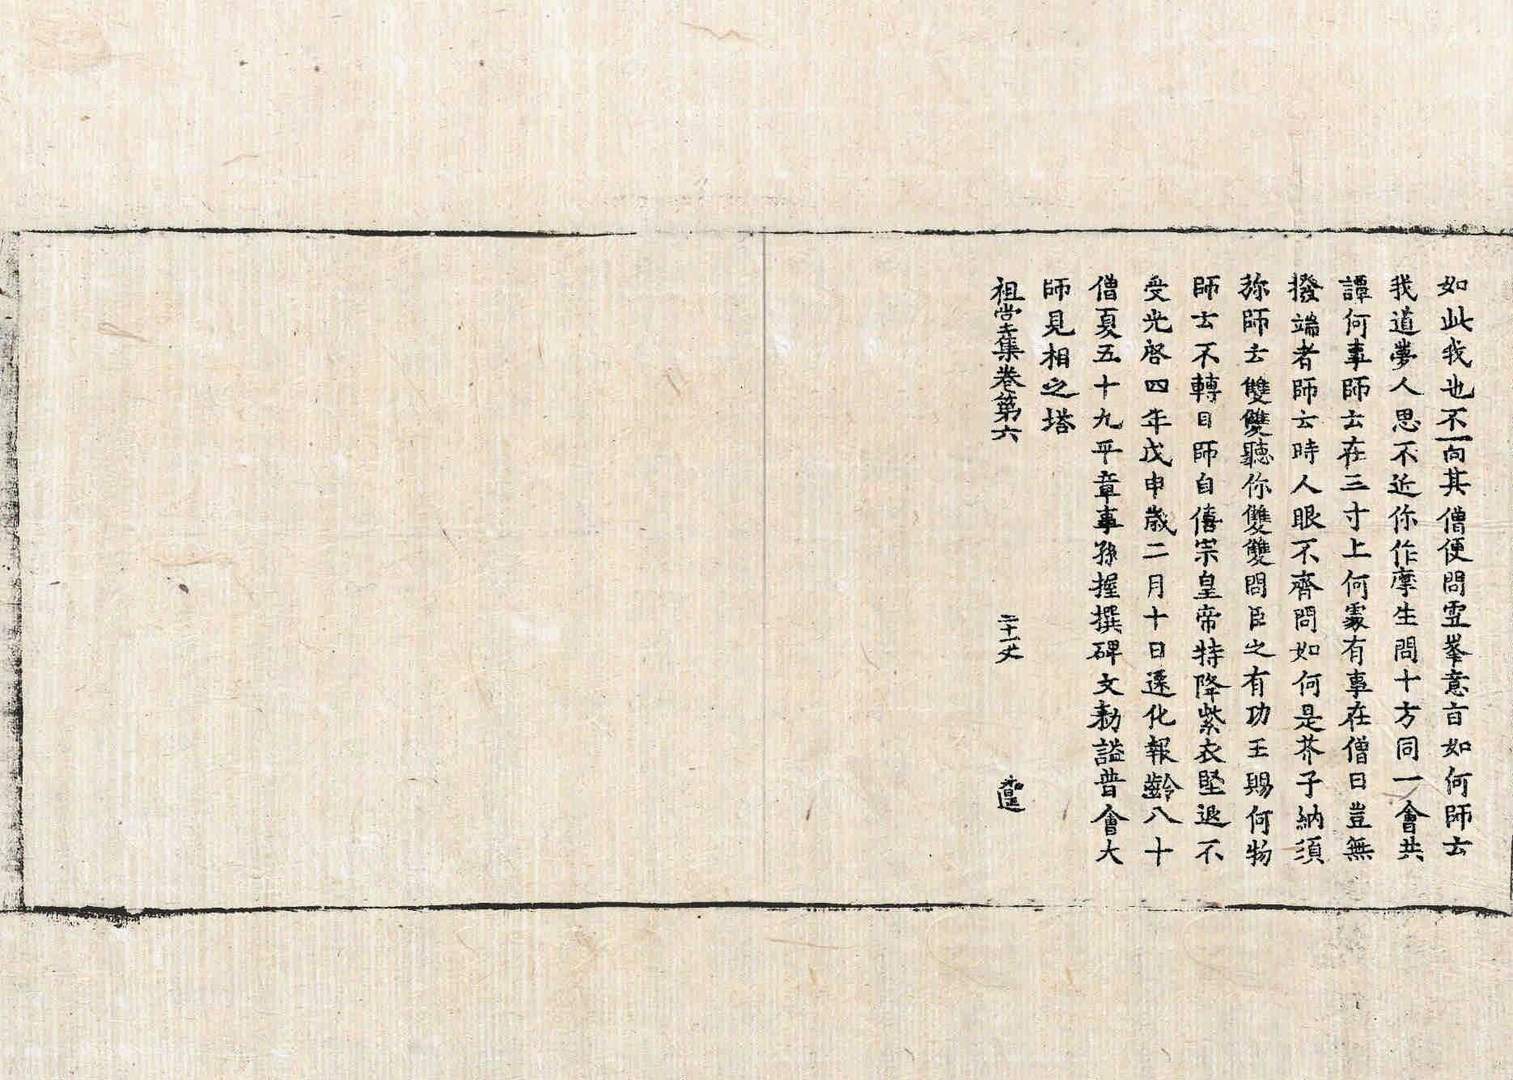 如此我也不一向其僧便問雪峯意旨如何師云
我道夢人思不近你作摩生問十方同一會共
譚何事師云在三寸上何處有事在僧曰豈無
撥端者師云時人眼不齊問如何是芥子納須
弥師云雙雙聽你雙雙問臣之有功王賜何物
師云不轉目師自僖宗皇帝特降紫衣堅退不
受光啓四年戊申歳二月十日遷化報齡八十
僧夏五十九平章事孫握撰碑文勑謚普會大
師見相之塔
祖堂集卷第六 二十一丈